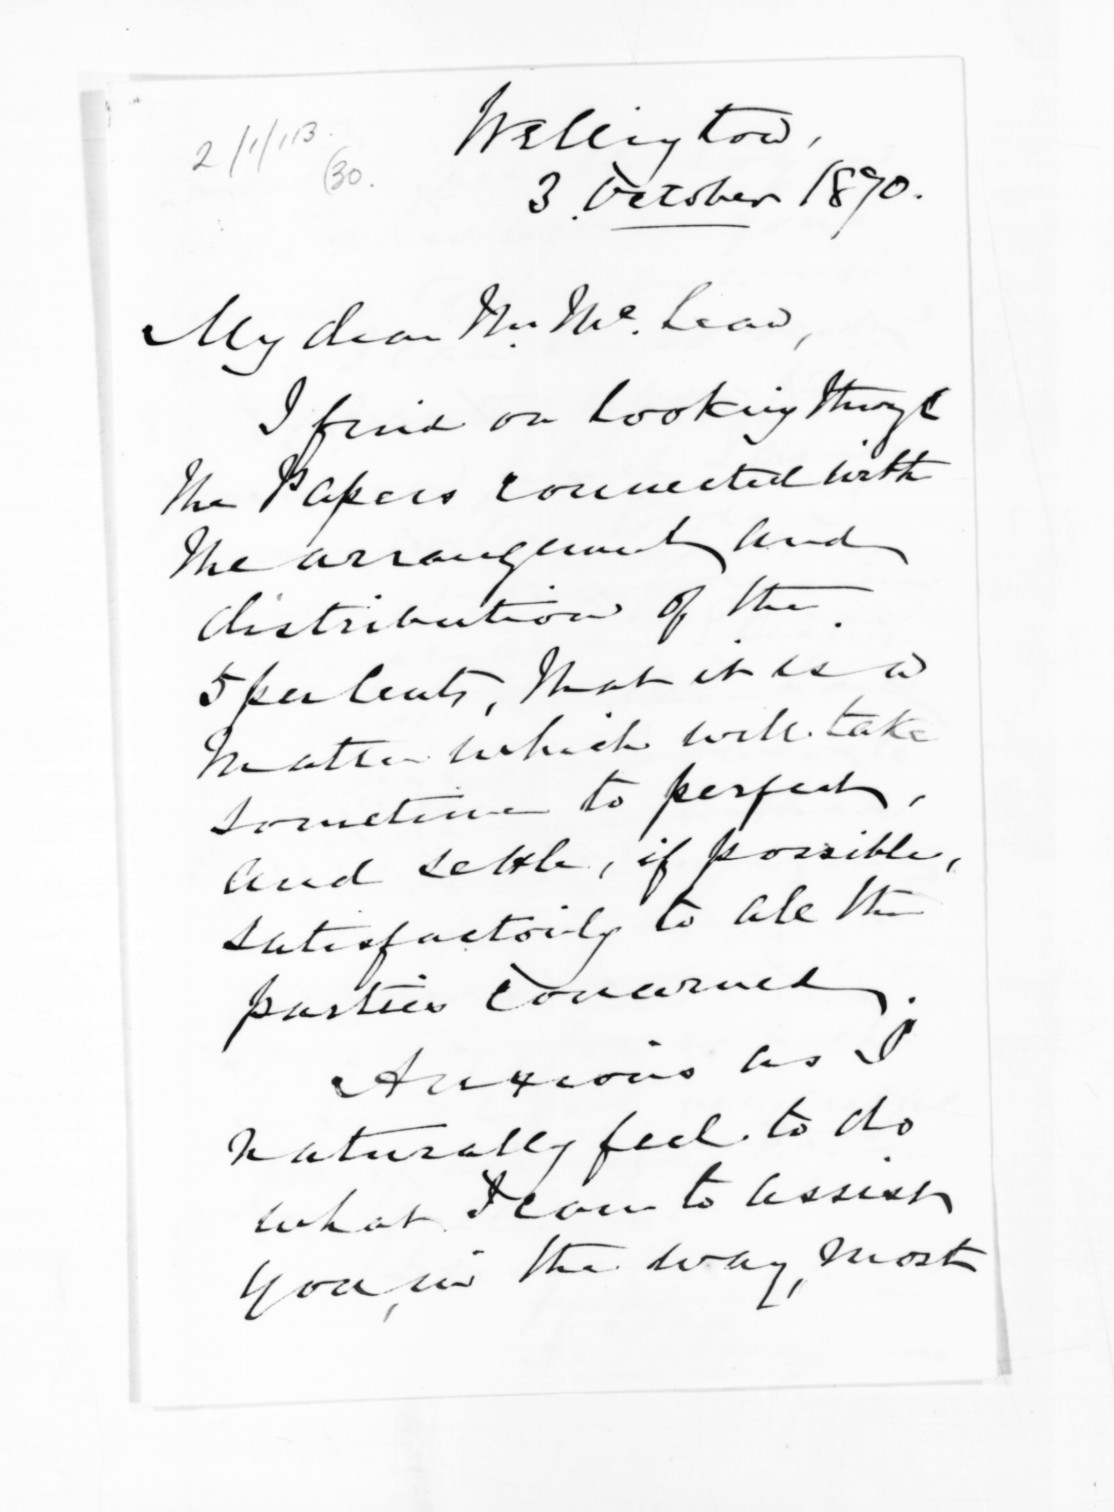 2/1/113.
(30.
Wellington,
3. October 1870.
My dear Mr. McLean,
I find on looking through
the Papers connected with
the arrangement and
distribution of the
5 per Cents, that it is a
matter which will take
sometime to perfect,
and settle, if possible,
satisfactorily to all the
parties concerned.
Anxious as I
naturally feel to do
what I can to assist
you, in the way, most